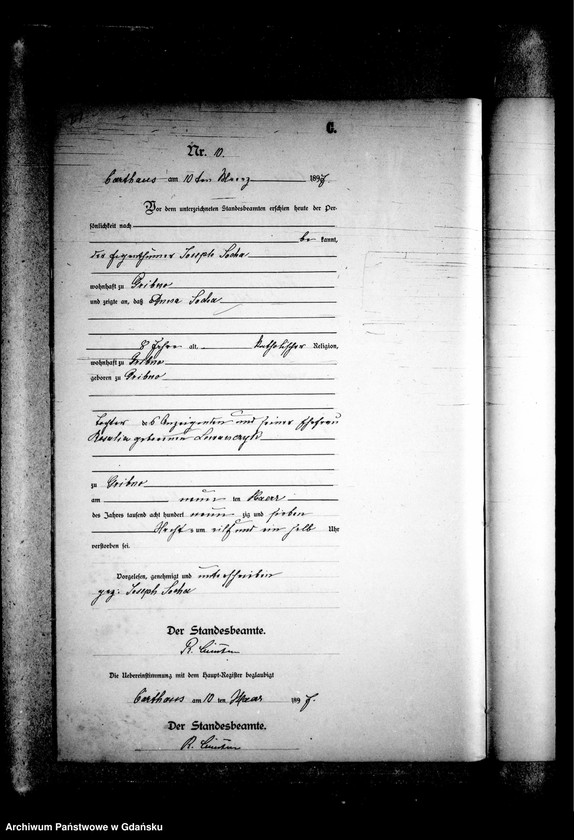 C.
Nr. 10.
Carthaus am 10 ten März 1897.
Vor dem unterzeichneten Standesbeamten erschien heute der Per-
sönlichkeit nach
be kannt,
der Eigenthümer Joseph Socha
wohnhaft zu Gribno
und zeigte an, daß Anna Socha
8 Jahre alt, katholischer Religion,
wohnhaft zu Gribno
geboren zu Gribno
Tochter des Anzeigenden und seiner Ehefrau
Rosalia geborenen
zu Gribno
am neun ten Maerz
des Jahres tausend acht hundert neun zig und sieben
Nachts um eilf und ein halb Uhr
verstorben sei.
Vorgelesen, genehmigt und unterschrieben
gez. Joseph Socha
Der Standesbeamte.
R.
Die Uebereinstimmung mit dem Haupt-Register beglaubigt
Carthaus am 10 ten Maerz 1897.
Der Standesbeamte.
R.
Archiwum Państwowe w Gdańsku